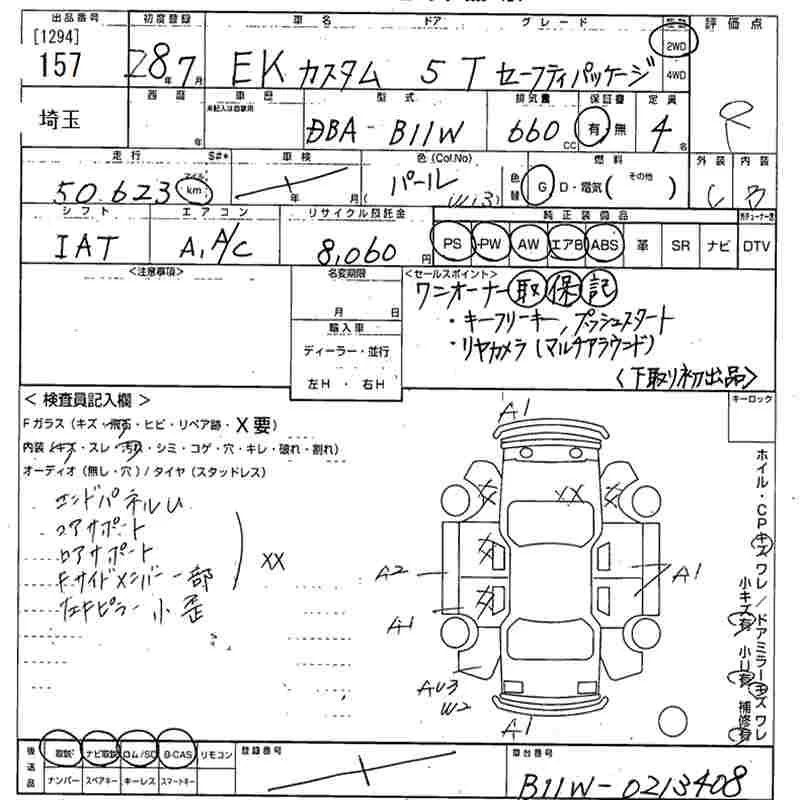 出品番号 初度登録 車名 ドア グレード 評価点
[1294]
157 28年7月 EK カスタム 5 T セーフティパッケージ 2WD 4WD
埼玉 西暦 年 車歴 未記入は自家用 型式 DBA-B11W 排気量 660 CC 保証書 有・無 定員 4名 R
走行 S#* 車検 色(Col.No) 燃料 外装 内装
50.623 マイル km 年 月 パール (W13) 色替 G D・電気( その他 ) C B
シフト エアコン リサイクル預託金 純正装備品
IAT A,A/C 8,060円 PS PW AW エアB ABS 革 SR ナビ DTV
<注意事項> 名変期限 <セールスポイント>
月 日 ワンオーナー 取 保 記
輸入車 ・キーフリーキー, プッシュスタート
ディーラー・並行 ・リヤカメラ(マルチアラウンド)
左H ・ 右H <下取り初出品>
<検査員記入欄> キーロック
Fガラス(キズ・飛石・ヒビ・リペア跡・X要)
内装(キズ・スレ・汚れ・シミ・コゲ・穴・キレ・破れ・割れ)
オーディオ(無し・穴)/タイヤ(スタッドレス)
エンドパネルU
コアサポート
ロアサポート XX
Fサイドメンバー一部
左Fピラー小歪
A1
XX
A2 A1
A1
AU3
W2
A1
ホイル・CPキズワレ/ドアミラーキズワレ
小キズ有 小U有 補修有
後送品 取説 ナビ取説 ロム/SD B-CAS リモコン 登録番号 車台番号
ナンバー スペアキー キーレス スマートキー B11W-0213408